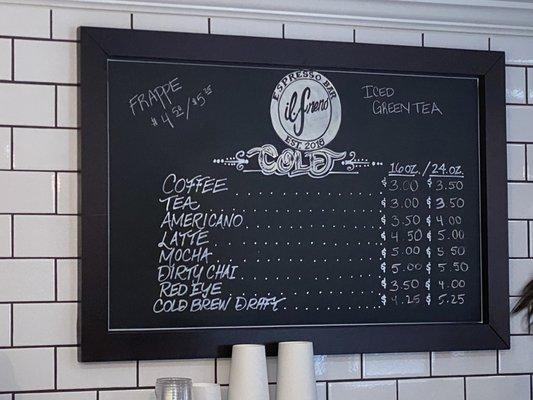 FRAPPE
$4.50/$5.25
ESPRESSO BAR
il forno
EST. 2015
COLD
ICED
GREEN TEA
16 OZ. / 24 OZ.
COFFEE $3.00 $3.50
TEA $3.00 $3.50
AMERICANO $3.50 $4.00
LATTE $4.50 $5.00
MOCHA $5.00 $5.50
DIRTY CHAI $5.00 $5.50
RED EYE $3.50 $4.00
COLD BREW DRAFT $4.25 $5.25